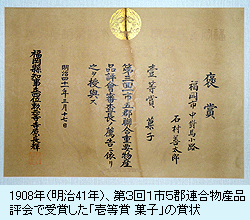 褒賞
福岡市中野馬小路
石村善太郎
壹等賞 菓子
第三回一市五郡聯合重要物産
品評會審査長ノ薦告ニ依リ
之ヲ授與ス
明治四十一年三月十七日
1908年(明治41年)、第3回1市5郡連合物産品
評会で受賞した「壱等賞 菓子」の賞状